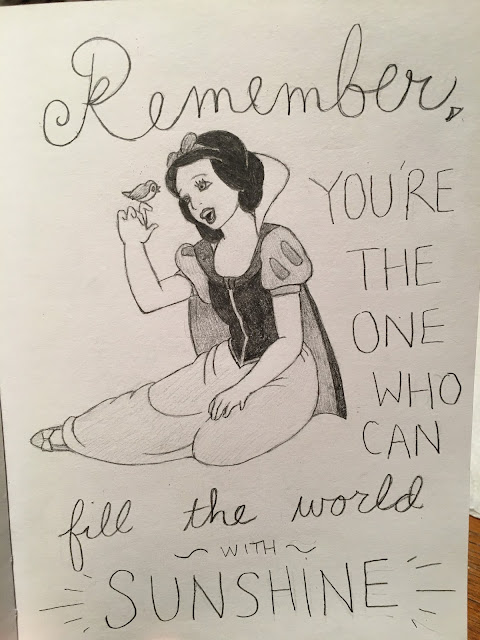 Remember,
YOU'RE
THE
ONE
WHO
CAN
fill the world
~ WITH ~
SUNSHINE